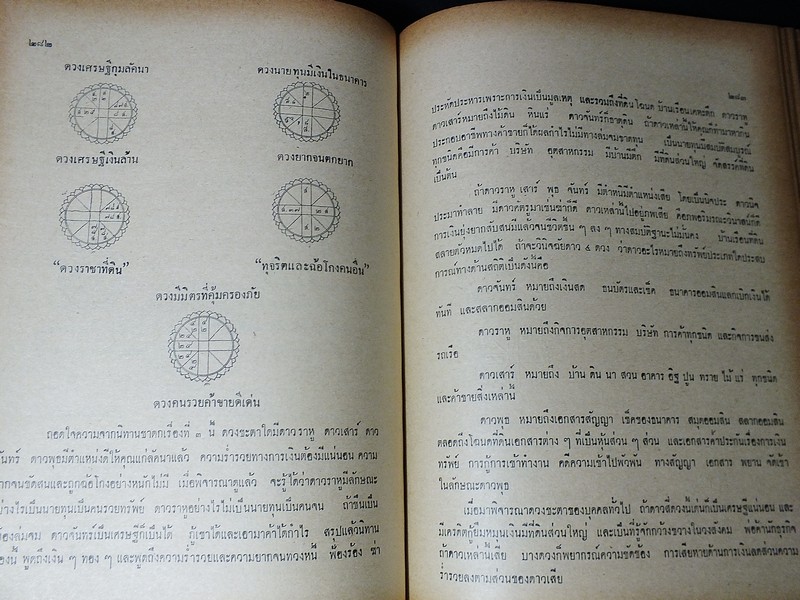 ๒๘๒
ดวงเศรษฐีกุมลัคนา
ดวงนายทุนมีเงินในธนาคาร
ดวงเศรษฐีเงินล้าน
ดวงยากจนตกยาก
“ดวงราชาที่ดิน”
“ทุจริตและฉ้อโกงคนอื่น”
ดวงมีมิตรที่คุ้มครองภัย
ดวงคนรวยค้าขายดีเด่น
ถอดใจความจากนิทานชาดกเรื่องที่ ๓ นี้ ดวงชะตาใดมีดาวราหู ดาวเสาร์ ดาว
จันทร์ ดาวพุธมีตำแหน่งดีให้คุณแก่ลัคนาแล้ว ความร่ำรวยทางการเงินต้องมีแน่นอน ความ
ยากจนขัดสนและถูกฉ้อโกงอย่างหนักไม่มี เมื่อพิจารณาดูแล้ว จะรู้ได้ว่าดาวราหูมีลักษณะ
อย่างไรเป็นนายทุนเป็นคนรวยทรัพย์ ดาวราหูอย่างไรไม่เป็นนายทุนเป็นคนจน ถ้าขึ้นเป็น
ฟ้องล่มจม ดาวจันทร์เป็นเศรษฐีก็เป็นได้ กู้เขาได้และเอามาค้าได้กำไร สรุปแล้วนิทาน
พูดถึงเงิน ๆ ทอง ๆ และพูดถึงความร่ำรวยและความยากจนทวงหนี้ ฟ้องร้อง ฆ่า
๒๘๓
ประหัตประหารเพราะการเงินเป็นมูลเหตุ และรวมถึงที่ดินโฉนด บ้านเรือนเคหะตึก ดาวราหู
ดาวเสาร์หมายถึงไม้ดิน หินแร่ ดาวจันทร์ก็ธาตุดิน ถ้าดาวเหล่านี้ให้คุณก็ทำมาหากิน
ประกอบอาชีพทางค้าขายก็ได้ผลกำไรไม่มีทางล่มจมขาดทุน เป็นนายทุนสมบัติสมบูรณ์
ทุกชนิดคือมีการค้า บริษัท อุตสาหกรรม มีบ้านมีตึก มีที่ดินส่วนใหญ่ จัดสรรค์ที่ดิน
เป็นต้น
ถ้าดาวราหู เสาร์ พุธ จันทร์ มีตำหนิมีตำแหน่งเสีย โดยเป็นนิจประ ดาวนิจ
ประมาทำลาย มีดาวศัตรูมาเข่นฆ่าก็ดี ดาวเหล่านี้ไปอยู่ภพเสีย คือภพอริมรณะวินาสน์ก็ดี
การเงินยุ่งยากสับสนมีแล้วจนชีวิตขึ้น ๆ ลง ๆ ทางสมบัติฐานะไม่มั่นคง บ้านเรือนที่ดิน
สลายตัวหมดไปได้ ถ้าจะวินิจฉัยดาว ๔ ดวง ว่าดาวอะไรหมายถึงทรัพย์ประเภทใดประสบ
การณ์ทางด้านสถิติเป็นดังนี้คือ
ดาวจันทร์ หมายถึงเงินสด ธนบัตรและเช็ค ธนาคารออมสินแลกเบิกเงินได้
ทันที และสลากออมสินด้วย
ดาวราหู หมายถึงกิจการอุตสาหกรรม บริษัท การค้าทุกชนิด และกิจการขนส่ง
รถเรือ
ดาวเสาร์ หมายถึง บ้าน ดิน นา สวน อาคาร อิฐ ปูน ทราย ไม้ แร่ ทุกชนิด
และค้าขายสิ่งเหล่านี้
ดาวพุธ หมายถึงเอกสารสัญญา เช็คของธนาคาร สมุดออมสิน สลากออมสิน
ตลอดถึงโฉนดที่ดินเอกสารต่าง ๆ ที่เป็นหุ้นส่วน ๆ ส่วน และเอกสารค้ำประกันเรื่องการเงิน
ทรัพย์ การกู้การเข้าทำงาน คดีความเข้าไปพัวพัน ทางสัญญา เอกสาร พยาน จัดเข้า
ในลักษณะดาวพุธ
เมื่อมาพิจารณาดวงชะตาของบุคคลทั่วไป ถ้าดาวสี่ดวงนี้เด่นก็เป็นเศรษฐีแน่นอน และ
มีเครดิตกู้ยืมหมุนเงินมีที่ดินส่วนใหญ่ และเป็นที่รู้จักกว้างขวางในวงสังคม พ่อค้านักธุรกิจ
ถ้าดาวเหล่านี้เสีย บางดวงก็พยากรณ์ความขัดข้อง การเสียหายด้านการเงินลดส่วนความ
ร่ำรวยลงตามส่วนของดาวเสีย